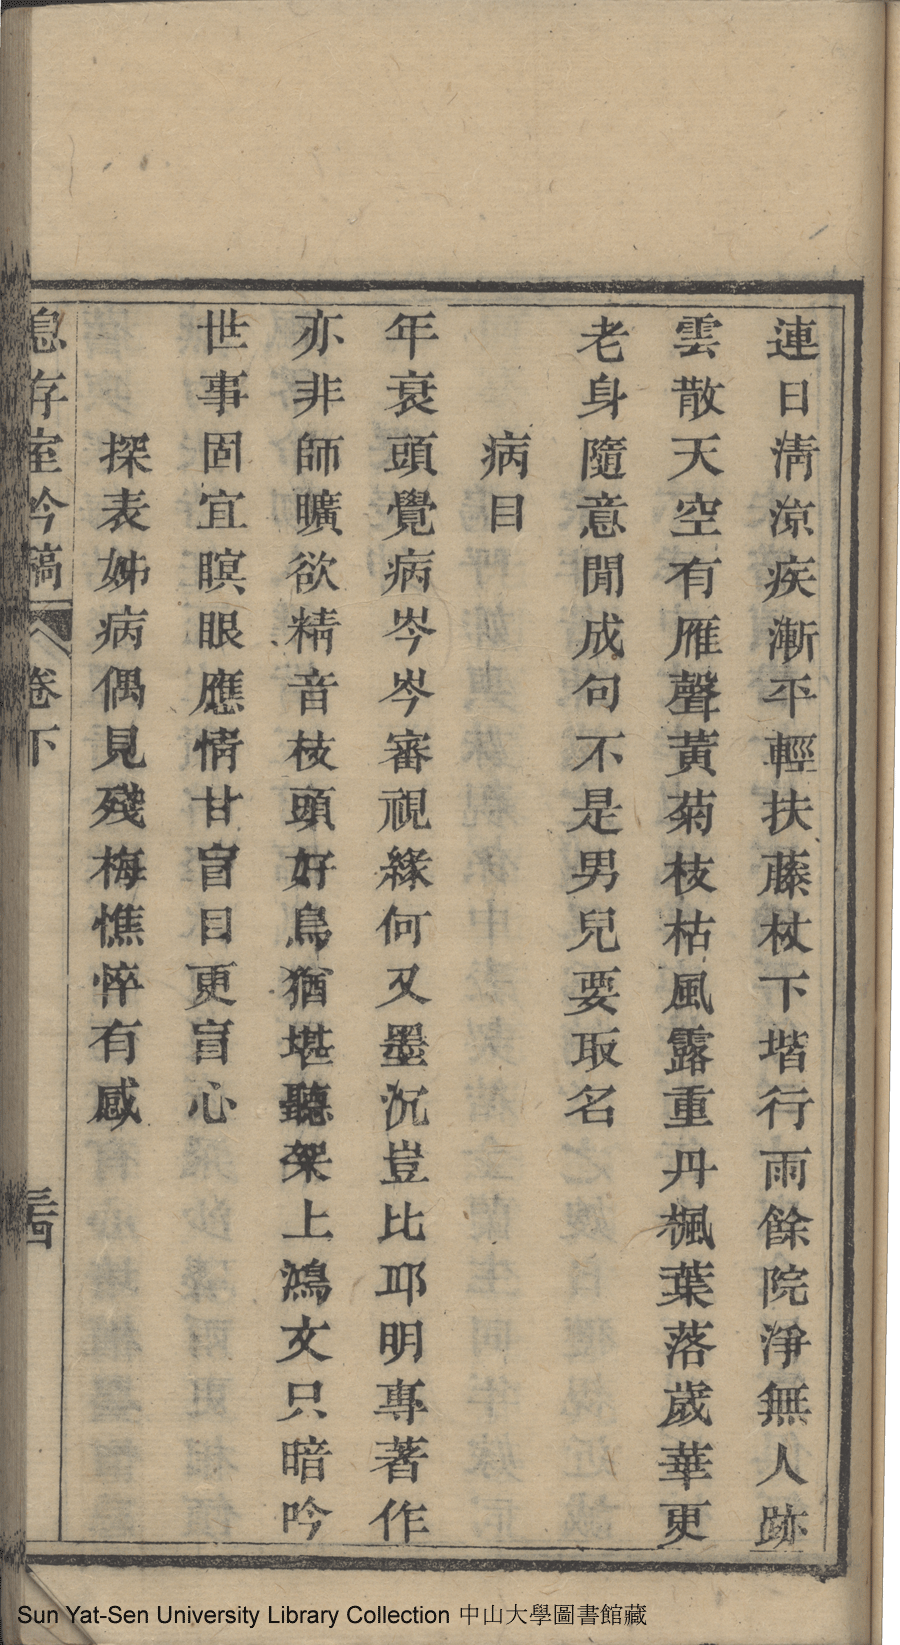 連日清涼疾漸平輕扶藤杖下堦行雨餘院淨無人跡
雲散天空有雁聲黃菊枝枯風露重丹楓葉落歲華更
老身隨意閒成句不是男兒要取名
病目
年衰頭覺病岑岑審視緣何又墨沉豈比邱明專著作
亦非師曠欲精音枝頭好鳥猶堪聽架上鴻文只暗吟
世事固宜瞑眼應情甘盲目更盲心
探表姊病偶見殘梅憔悴有感
息存室吟稿 卷下 三四
Sun Yat-Sen University Library Collection 中山大學圖書館藏